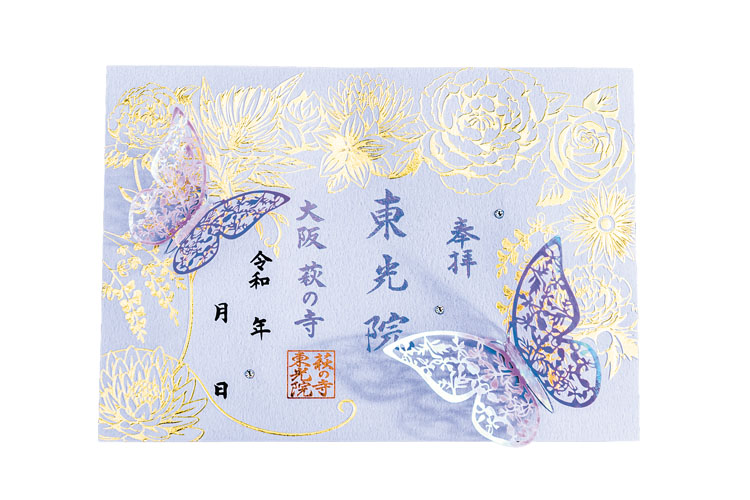 奉拝
東光院
大阪 萩の寺
令和 年
月
日
萩の寺
東光院